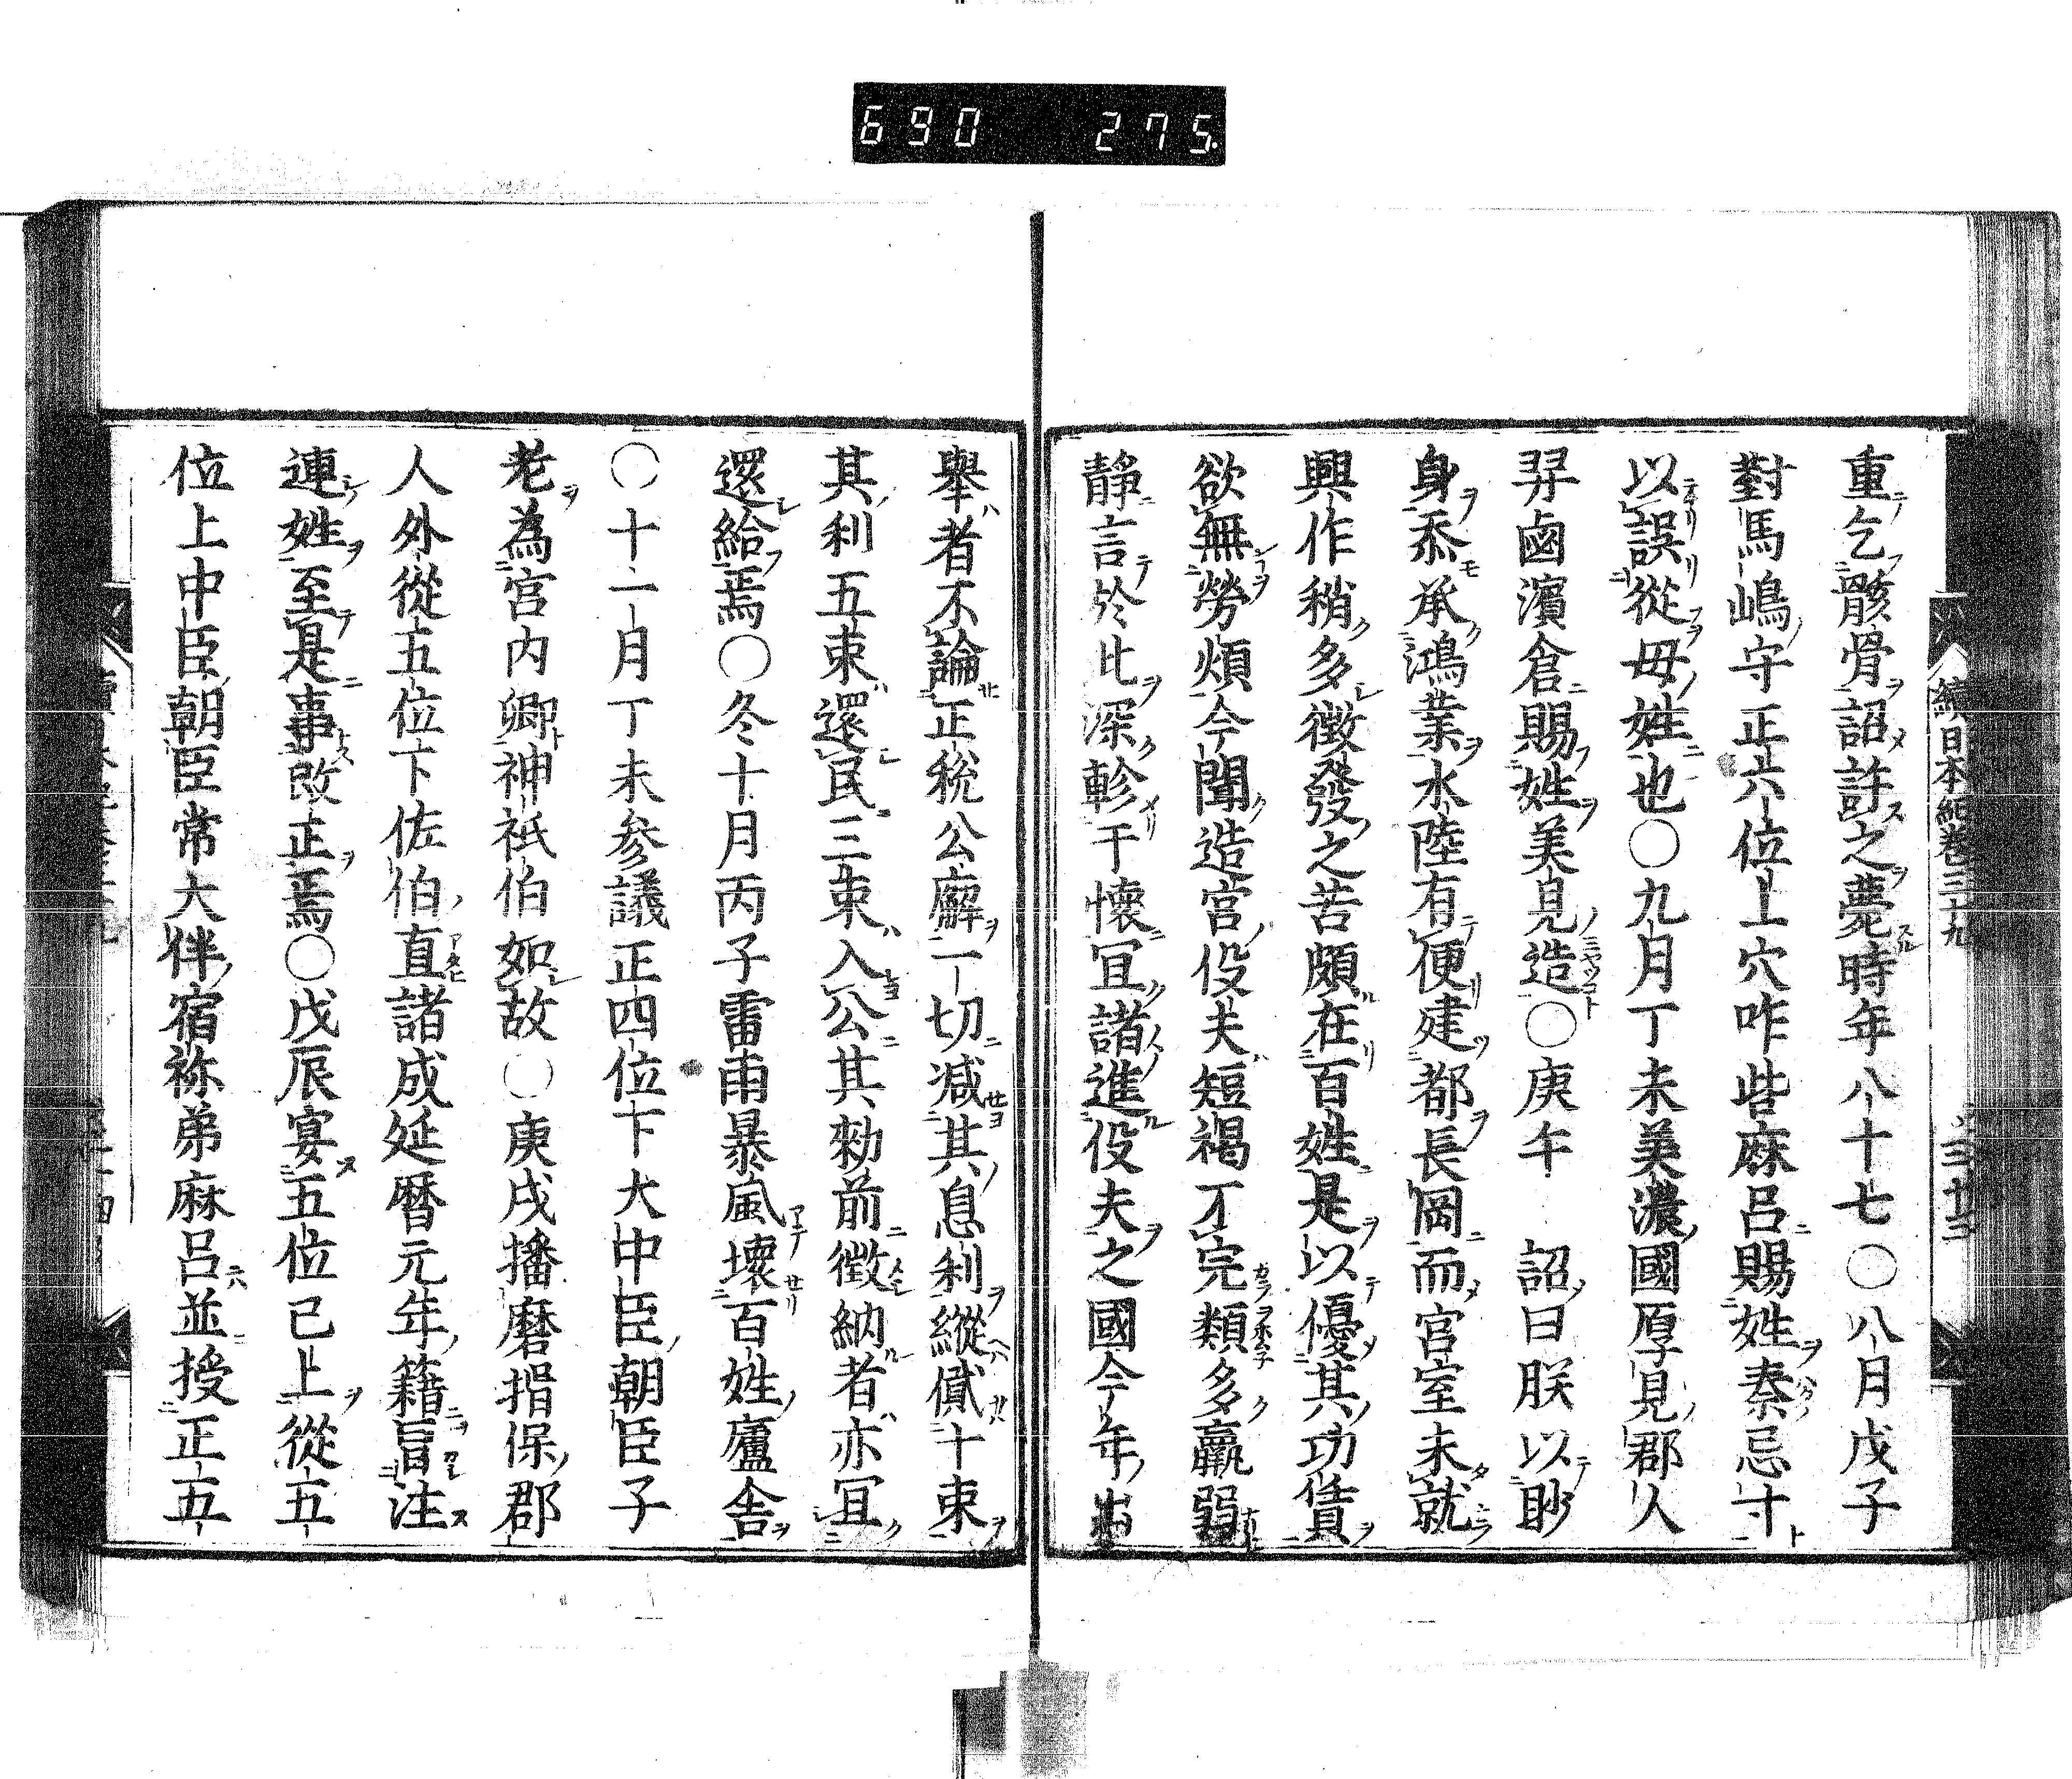 690 275
續日本紀卷三十九
重乞骸骨詔許之薨時年八十七〇八月戊子
對馬嶋守正六位上穴咋呰麻呂賜姓秦忌寸
以誤從母姓也〇九月丁未美濃國厚見郡人
羿鹵濱倉賜姓美見造〇庚午 詔曰朕以眇
身忝承鴻業水陸有便建都長岡而宮室未就
興作稍多徵發之苦頗在百姓是以優其功貨
欲無勞煩今聞造宮役夫短褐不完類多羸弱
靜言於此深軫于懷冝諸進役夫之國今年出
舉者不論正稅公廨一切減其息利縱貸十束
其利五束還民三束入公其勑前徵納者亦冝
還給焉〇冬十月丙子雷雨暴風壞百姓廬舍
〇十一月丁未參議正四位下大中臣朝臣子
老為宮內卿神祇伯如故〇庚戌播磨揖保郡
人外從五位下佐伯直諸成延曆元年籍冒注
連姓至是事改正焉〇戊辰宴五位已上從五
位上中臣朝臣常大伴宿祢弟麻呂並授正五